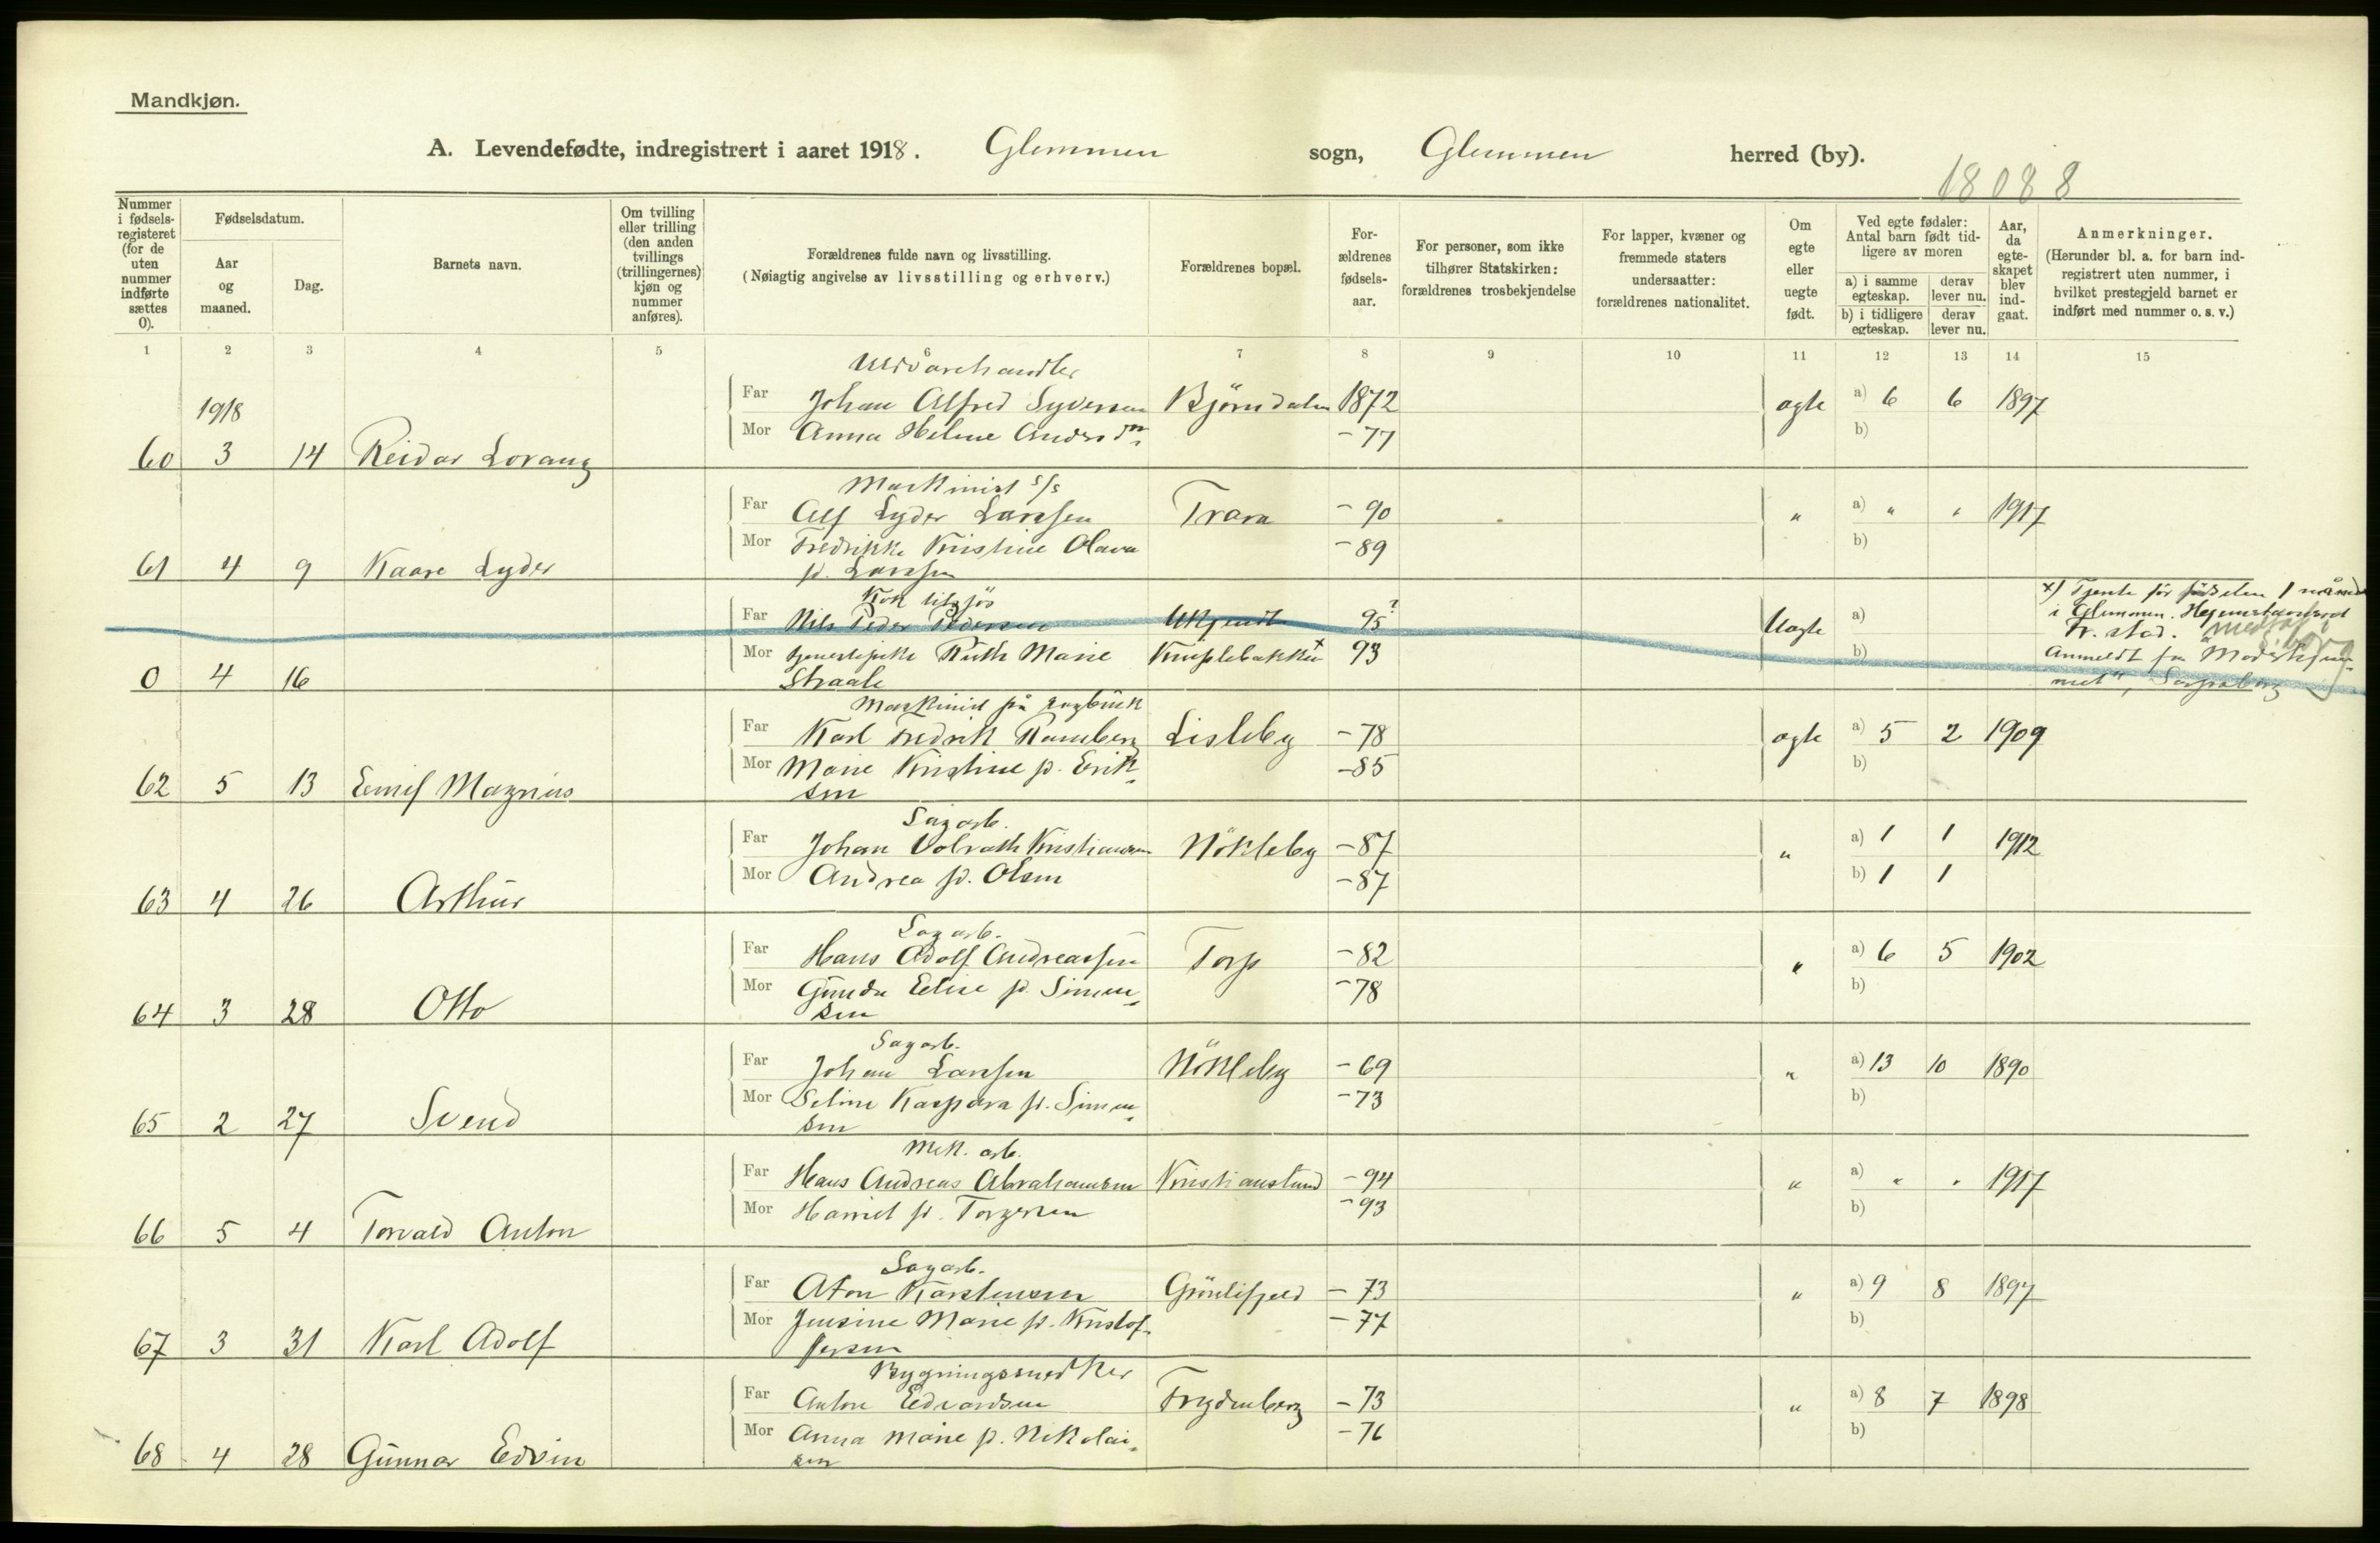 Mandkjøn.
A. Levendefødte, indregistrert i aaret 1918. Glemmen sogn, Glemmen herred (by).
18088
Nummer i fødsels-registeret (for de uten nummer indførte sættes 0).
Fødselsdatum.
Aar og maaned.
Dag.
Barnets navn.
Om tvilling eller trilling (den anden tvillings (trillingernes) kjøn og nummer anføres).
Forældrenes fulde navn og livsstilling.
(Nøiagtig angivelse av livsstilling og erhverv.)
Forældrenes bopæl.
For-ældrenes fødsels-aar.
For personer, som ikke tilhører Statskirken: forældrenes trosbekjendelse
For lapper, kvæner og fremmede staters undersaatter: forældrenes nationalitet.
Om egte eller uegte født.
Ved egte fødsler: Antal barn født tid-ligere av moren
a) i samme egteskap.
derav lever nu.
b) i tidligere egteskap.
derav lever nu.
Aar, da egte-skapet blev ind-gaat.
Anmerkninger.
(Herunder bl. a. for barn ind-registrert uten nummer, i hvilket prestegjeld barnet er indført med nummer o. s. v.)
1 2 3 4 5 6 7 8 9 10 11 12 13 14 15
Uldvarehandler
Far Johan Alfred Syversen Björndalen 1872 ægte a) 6 6 1897
1918
Mor Anna Helene Andersdn - 77 b)
60 3 14 Reidar Lorang
Maskinist s/s
Far Alf Lyder Larssen Trara - 90 " a) " " 1917
Mor Fredrikke Kristine Olava - 89 b)
61 4 9 Kaare Lyder f. Larssen
Kok tilsjøs
Far Nils Peder Pedersen Ukjendt 95? Uægte a)
x) Tjente før fødselen 1 måned
i Glemmen. Hjemstavnsret
Fr.stad.
Mor tjenestepike Ruth Marie Knipplebakken x 93 b)
Anmeldt fra "Mødrehjem-
0 4 16 Straale
met", Sarpsborg
Maskinist på
Far Karl Fredrik Ramberg Lisleby - 78 ægte a) 5 2 1909
Mor Marie Kristine f. Erik- -85 b)
62 5 13 Emil Magnus sen
Sagarb.
Far Johan Volrath Kristiansen Nökleby - 87 " a) 1 1 1912
Mor Andrea f. Olsen - 87 b) 1 1
63 4 26 Arthur
Sagarb.
Far Hans Adolf Andreassen Torp - 82 " a) 6 5 1902
Mor Gunda Eline f. Simen- - 78 b)
64 3 28 Otto sen
Sagarb.
Far Johan Larssen Nökleby - 69 " a) 13 10 1890
Mor Seline Kaspara f. Simen- - 73 b)
65 2 27 Svend sen
Mek. arb.
Far Hans Andreas Abrahamsen Kristianslund - 94 " a) " " 1917
Mor Harriet f. Torgersen - 93 b)
66 5 4 Torvald Anton
Sagarb.
Far Aton Karstensen Grönlifjeld - 73 " a) 9 8 1897
Mor Jensine Marie f. Kristof- - 77 b)
67 3 31 Karl Adolf fersen
Bygningssnedker
Far Anton Edvardsen Frydenberg - 73 " a) 8 7 1898
Mor Anna Marie f. Nikolai- - 76 b)
68 4 28 Gunnar Edvin sen